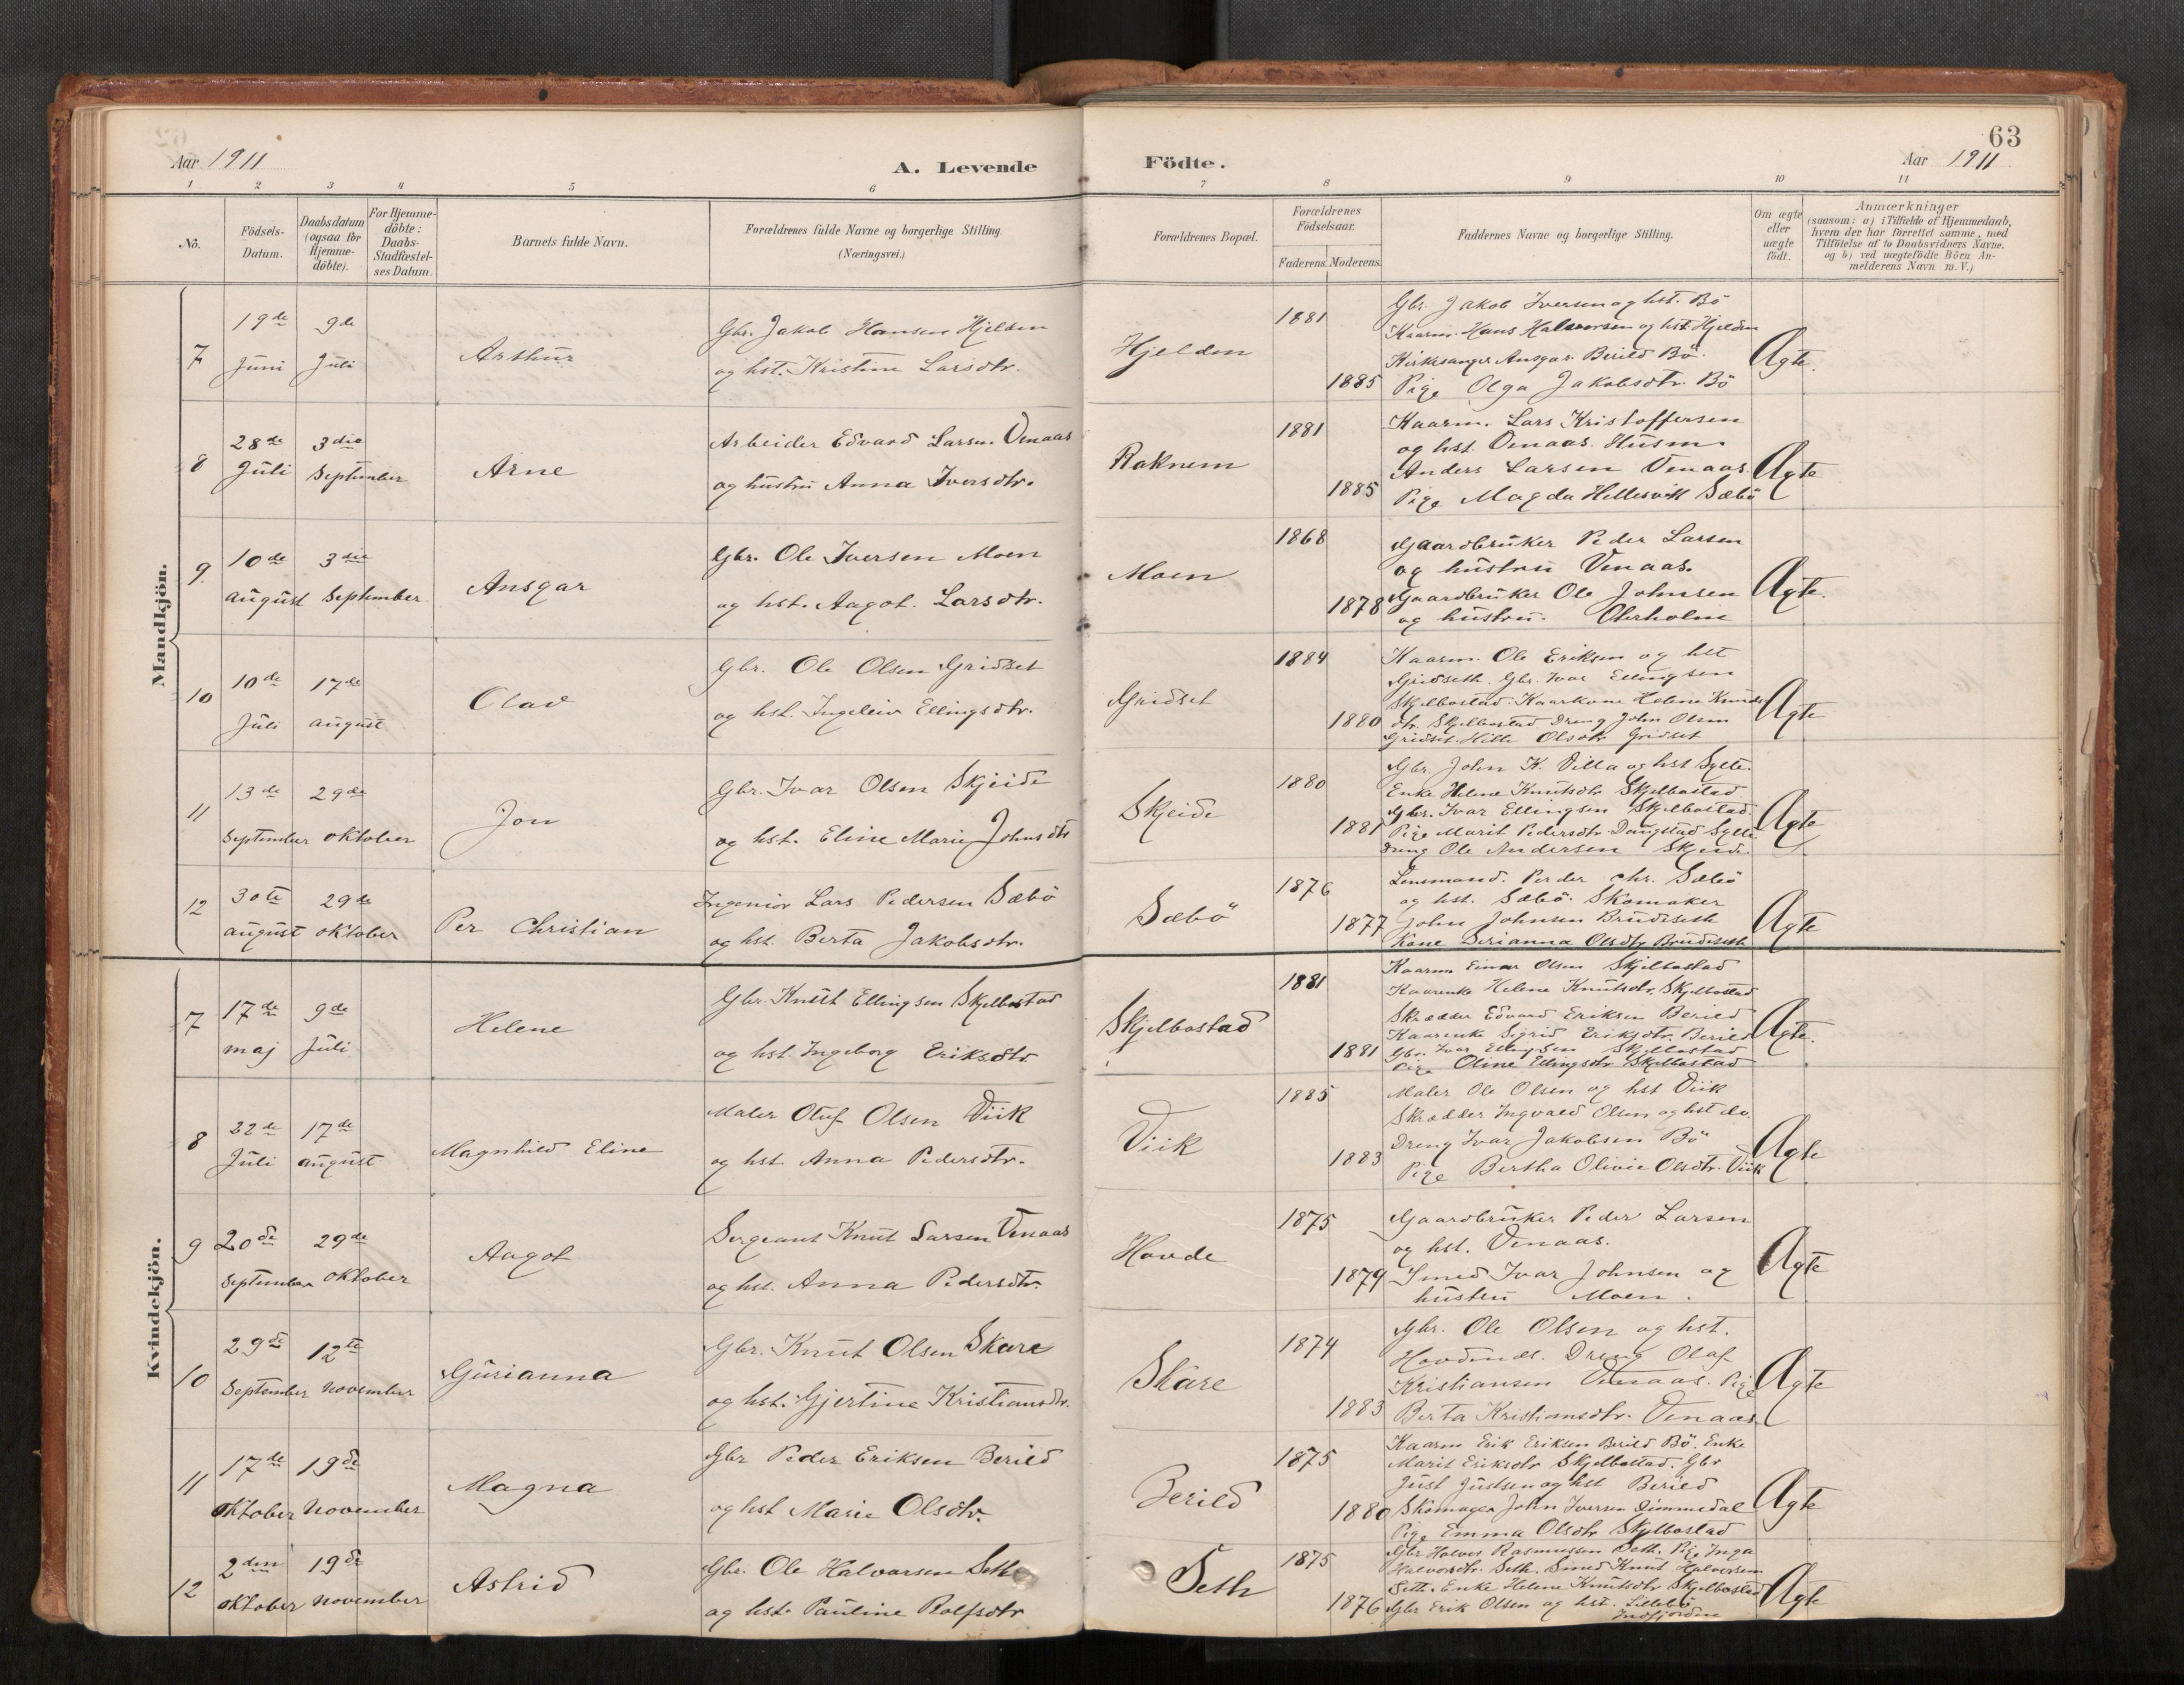 63
Aar 1911
A. Levende
Födte.
Aar 1911
1 2 3 4 5 6 7 8 9 10 11
No.
Födsels-
Datum.
Daabsdatum
(ogsaa för
Hjemme-
döbte).
For Hjemme-
döbte:
Daabs-
Stadfæstel-
ses Datum.
Barnets fulde Navn.
Forældrenes fulde Navne og borgerlige Stilling.
(Næringsvei.)
Forældrenes Bopæl.
Forældrenes
Födselsaar.
Faderens. Moderens.
Faddernes Navne og borgerlige Stilling.
Om ægte
eller
uægte
født.
Anmærkninger
(saasom: a) i Tilfælde af Hjemmedaab,
hvem der har forrettet samme, med
Tilföielse af to Daabsvidners Navne,
og b) ved uægtefödte Börn An-
melderens Navn m. V.)
Mandkjön.
7
19de 9de
Juni Juli
Arthur
Gbr. Jakob Hansen Hjelden
og hst. Kristine Larsdtr.
Hjelden
1881
1885
Gbr. Jakob Iversen og hst. Bö
Kaarm. Hans Halvorsen og hst Hjelden
Kirkesanger Ansgar Berild Bö.
Pige Olga Jakobsdtr. Bö
Ægte.
8
28de 3die
Juli September
Arne
Arbeider Edvard Larsen Venaas
og hustru Anna Iversdtr.
Raknem
1881
1885
Kaarm. Lars Kristoffersen
og hst. Venaas. Husm.
Anders Larsen Venaas.
Pige Magda Hellesvik Sæbö
Ægte
9
10de 3die
august September.
Ansgar
Gbr. Ole Iversen Moen
og hst. Aagot Larsdtr.
Moen
1868
1878
Gaardbruker Peder Larsen
og hustru Venaas.
Gaardbruker Ole Johnsen
og hustru. Oterholm
Ægte.
10
10de 17de
Juli august
Olav
Gbr. Ole Olsen Gridset
og hst. Ingeleiv Ellingsdtr.
Gridset
1884
1880
Kaarm. Ole Eriksen og hst
Gridseth. Gbr. Ivar Ellingsen
Skjelbostad. Kaarkone Helene Knuds
dtr. Skjelbostad Dreng John Olsen
Gridset. Olsdtr Gridset
Ægte
11
13de 29de
September oktober
Jon
Gbr. Ivar Olsen Skjeide
og hst. Eline Marie Johnsdtr
Skjeide
1880
1881
Gbr. John K. Villa og hst Sylte.
Enke Helene Knutsdtr Skjelbostad
Gbr. Ivar Ellingsen Skjelbostad.
Pige Marit Pedersdtr Daugstad Sylte
Dreng Ole Andersen Skjeide
Ægte
12
30te 29de
august oktober
Per Christian
Ingeniör Lars Pedersen Sæbö
og hst. Berta Jakobsdtr.
Sæbö
1876
1877
Lensmand. Peder Chr. Sæbö
og hst. Sæbö. Skomaker
John Johnsen Brudeseth
Kone Serianna Olsdtr Brudeseth
Ægte
Kvindekjön.
7
17de 9de
maj Juli
Helene
Gbr. Knut Ellingsen Skjelbostad
og hst. Ingeborg Eriksdtr
Skjelbostad
1881
1881
Kaarm Einar Olsen Skjelbostad
Kaarenke Helene Knutsdtr. Skjelbostad
Skrædder Edvard Eriksen Berild
Kaarenke Sigrid Eriksdtr. Berild
Gbr. Ivar Ellingsen Skjelbostad
Pige Oline Ellingsdtr Skjelbostad
Ægte.
8
22de 17de
Juli august
Magnhild Eline
Maler Oluf Olsen Viik
og hst Anna Pedersdtr.
Viik
1885
1883
Maler Ole Olsen og hst Viik
Skrædder Ingvald Olsen og hst do.
Dreng Ivar Jakobsen Bö
Pige Bertha Olivie Olsdtr. Viik
Ægte
9
20de 29de
September oktober
Aagot
Sergeant Knut Larsen Venaas
og hst. Anna Pedersdtr.
Hovde
1875
1879
Gaardbruker Peder Larsen
og hst. Venaas.
Smed Ivar Johnsen og
hustru Moen.
Ægte
10
29de 12te
September november
Gurianna
Gbr. Knut Olsen Skare
og hst. Gjertine Kristiansdtr.
Skare
1874
1883
Gbr. Ole Olsen og hst.
Hovdenes. Dreng Olaf
Kristiansen Venaas. Pige
Berta Kristiansdtr. Venaas
Ægte
11
17de 19de
oktober november
Magna
Gbr Peder Eriksen Berild
og hst Marie Olsdtr.
Berild
1875
1880
Kaarm Erik Eriksen Berild Bö. Enke
Marit Eriksdtr Skjelbostad. Gbr
Just Justsen og hst Berild
Skomager John Iversen Dimmedal
Pige Emma Olsdtr Skjelbostad
Ægte
12
2den 19de
oktober november
Astrid
Gbr. Ole Halvorsen Seth
og hst. Pauline Rolfsdtr
Seth
1875
1876
Gbr Halvor Rasmussen Seth. Pige Inga
Halvorsdtr. Seth. Smed Knut Halvorsen
Seth. Enke Helene Knutsdtr Skjelbostad
Gbr Erik Olsen og hst. Lillebö
Indfjorden
Ægte